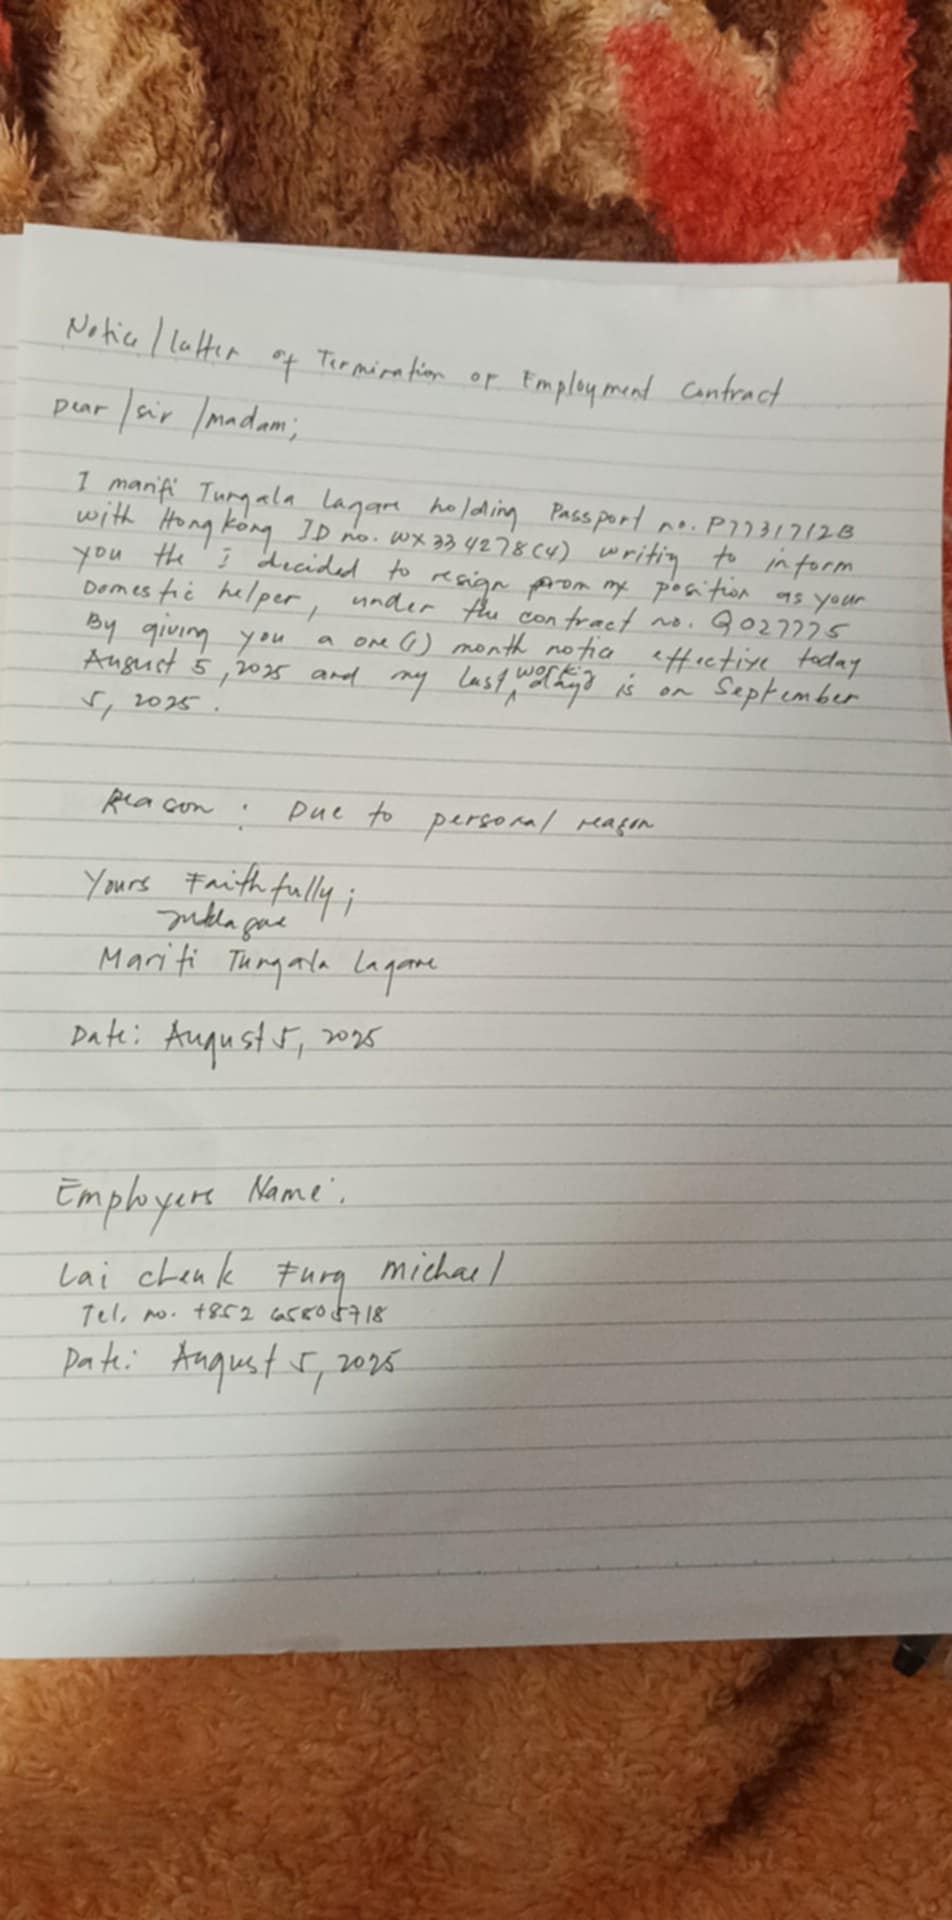 Notice/latter of Termination of Employment Contract
Dear /sir /madam;
I marifi Tungala Lagare holding Passport no. P7731712B
with Hongkong ID no. WX334278(4) writing to inform
you the i decided to resign from my position as your
Domestic helper, under the contract no. Q027775
By giving you a one (1) month notice effective today
August 5, 2025 and my last working days is on September
5, 2025.
Reason: Due to personal reason
Yours Faithfully;
Marifi Tungala Lagare
Date: August 5, 2025
Employers Name:
Lai cheuk Fung michael
Tel. no. +852 65805718
Date: August 5, 2025